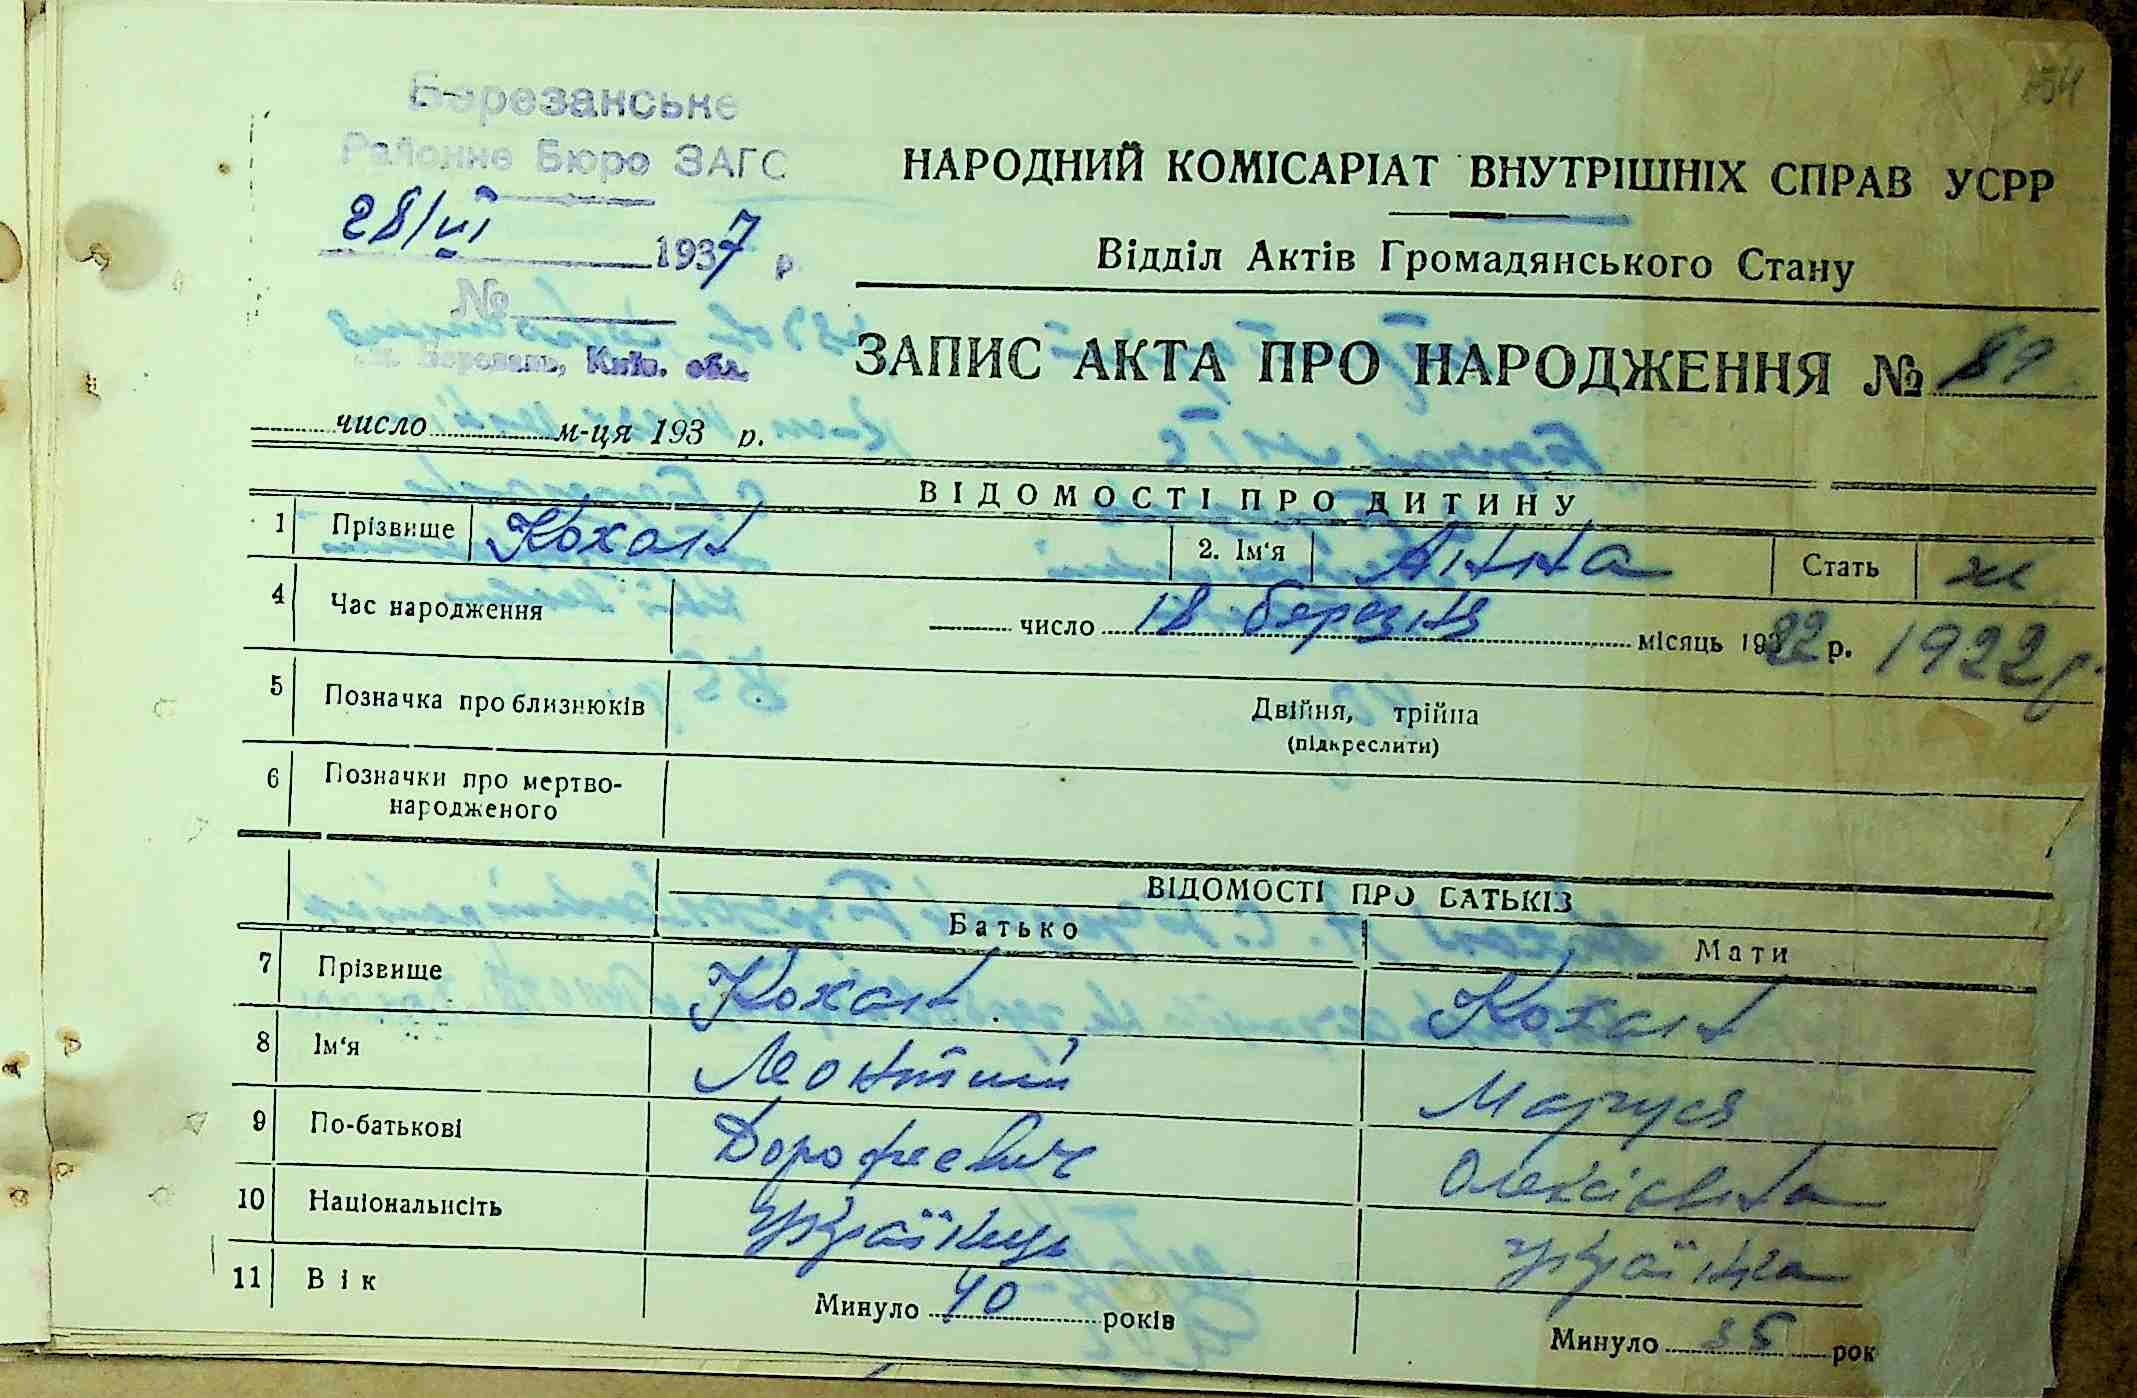 154
Березанське
Районне Бюро ЗАГС
28/VI 1937 р.
№
м. Березань, Київ. обл.
НАРОДНИЙ КОМІСАРІАТ ВНУТРІШНІХ СПРАВ УСРР
Відділ Актів Громадянського Стану
ЗАПИС АКТА ПРО НАРОДЖЕННЯ № 89
число м-ця 193 р.
ВІДОМОСТІ ПРО ДИТИНУ
1 Прізвище Кохан 2. Ім'я Анна Стать ж
4 Час народження число 18 березня місяць 1922 р. 1922 р
5 Позначка про близнюків Двійня, трійна
(підкреслити)
6 Позначки про мертво-
народженого
ВІДОМОСТІ ПРО БАТЬКІВ
Батько Мати
7 Прізвище Кохан Кохан
8 Ім'я Леонтій Маруся
9 По-батькові Дорофеевич Олексієвна
10 Національність Українець Українка
11 Вік Минуло 40 років Минуло 35 рок